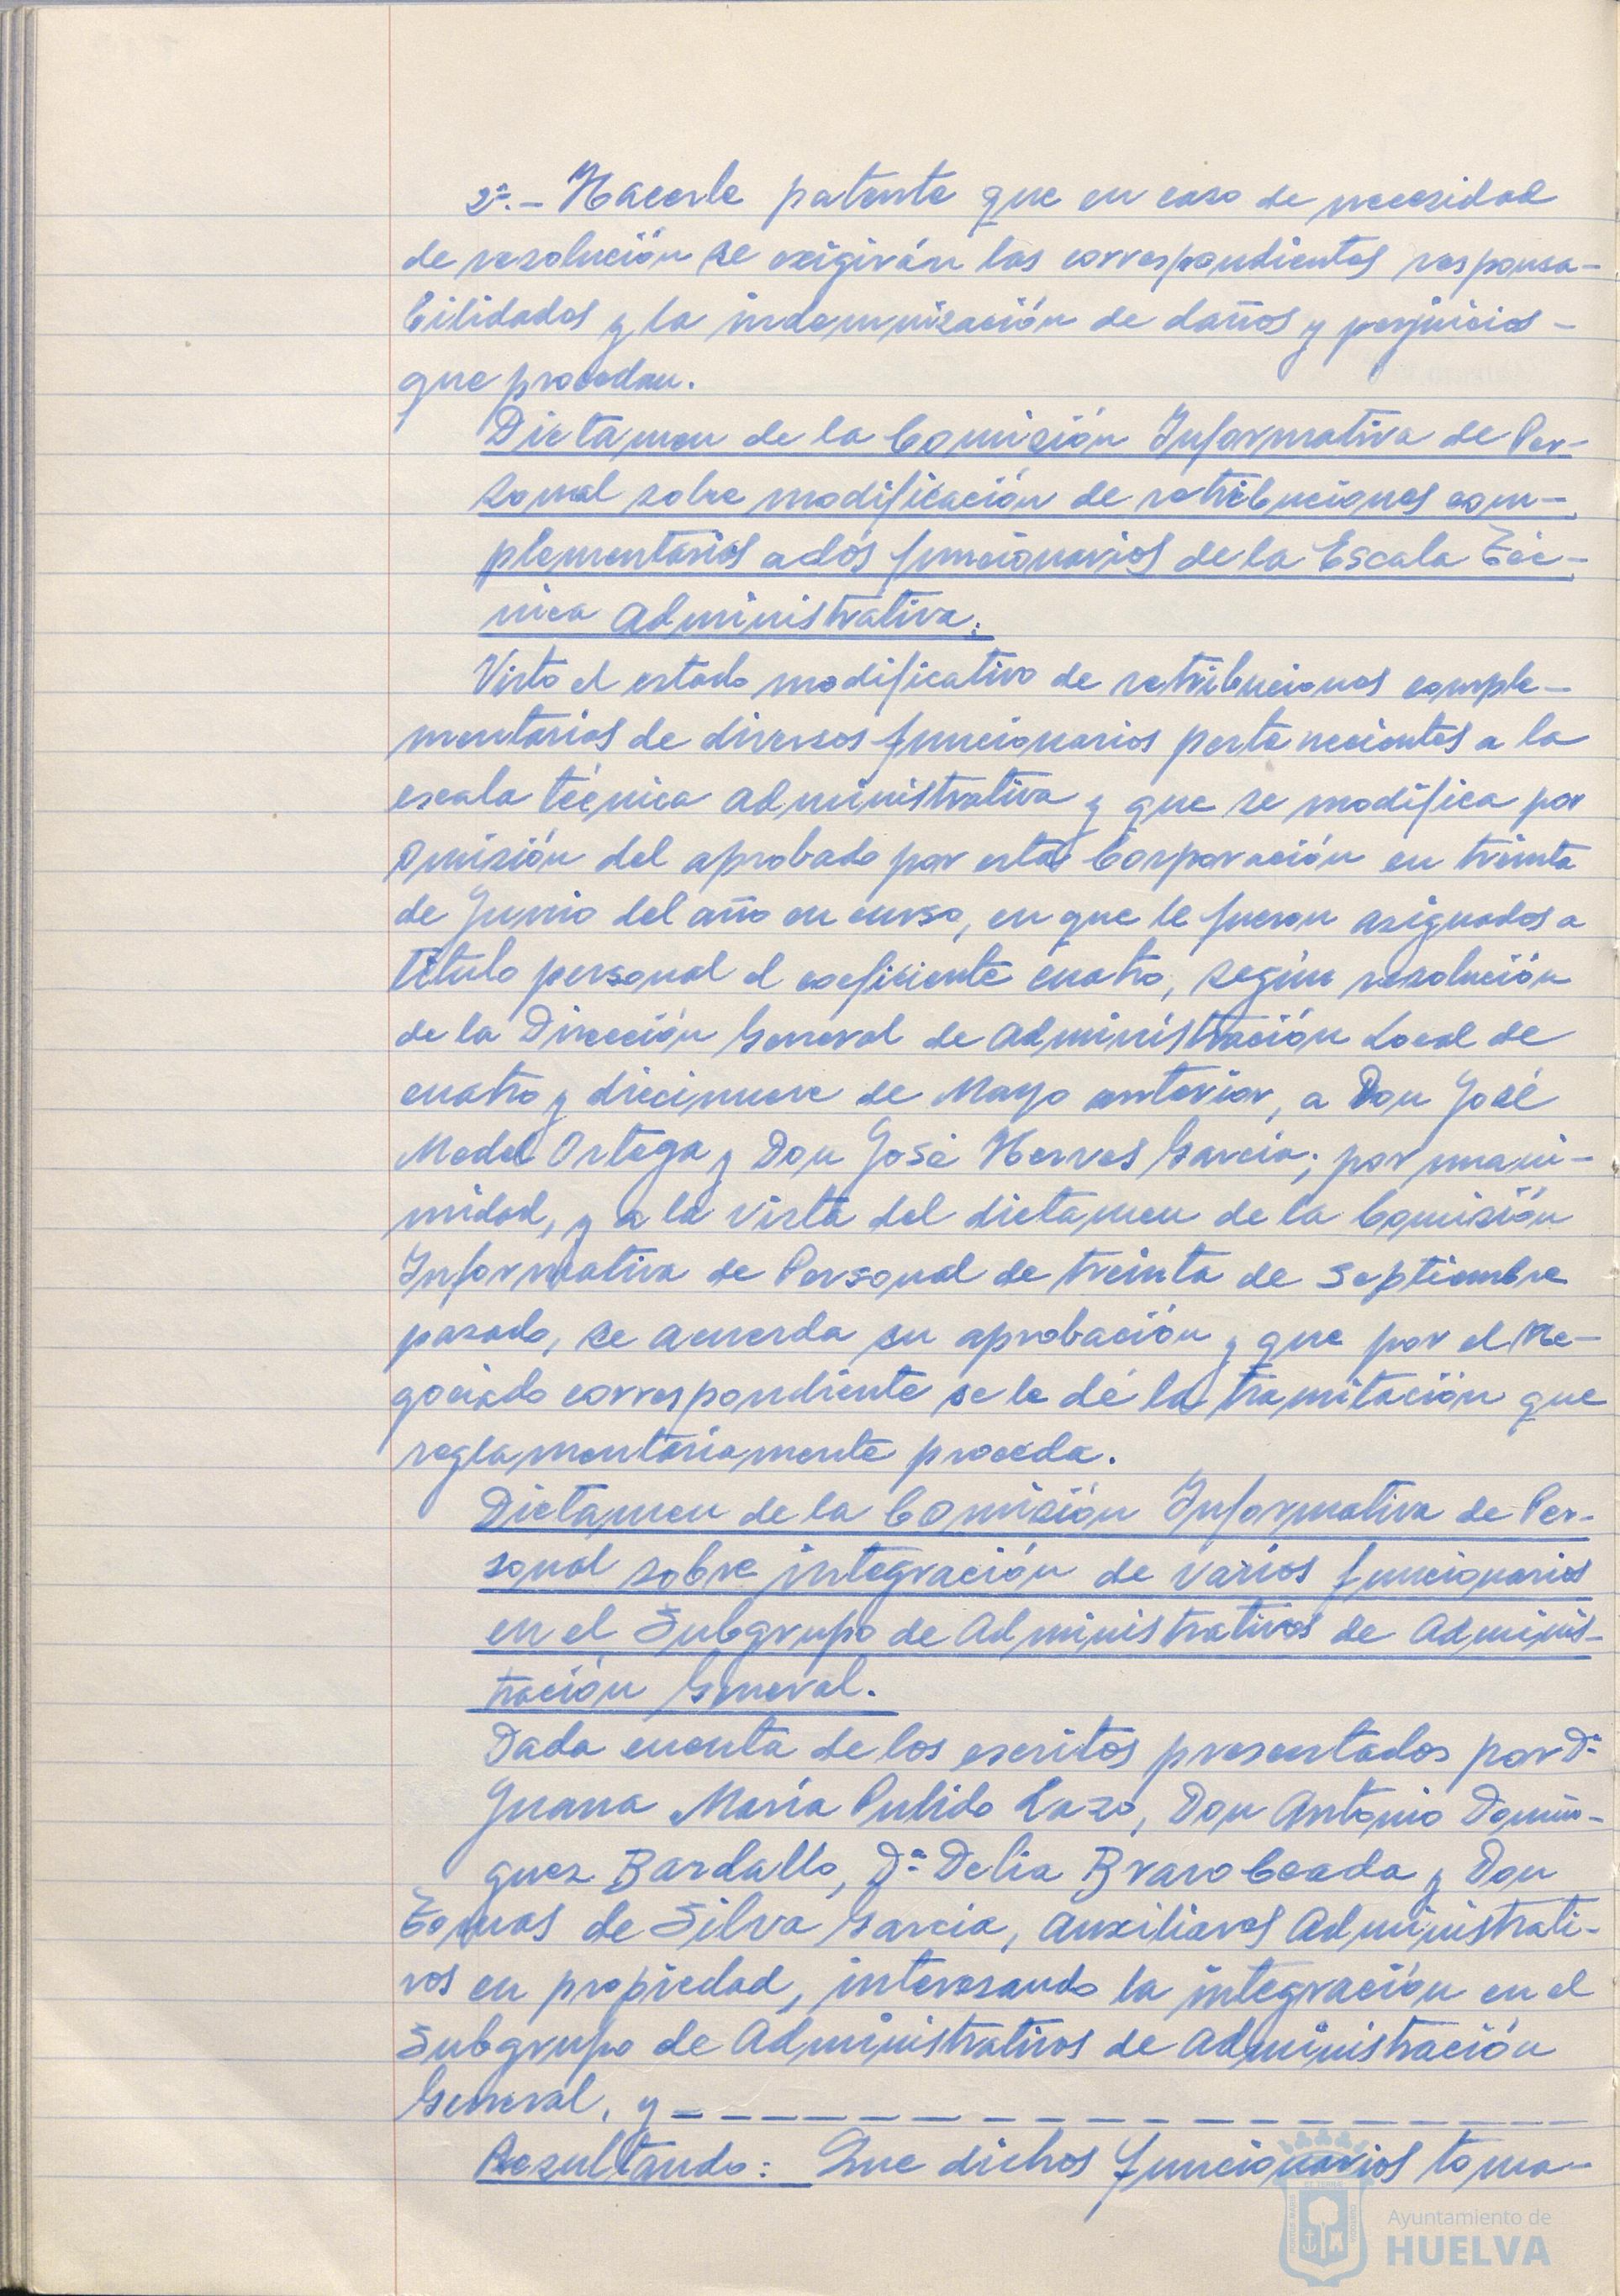 2º.- Hacerle patente que en caso de necesidad
de resolución se exigirán las correspondientes responsa-
bilidades y la indemnización de daños y perjuicios -
que procedan.
Dictamen de la Comisión Informativa de Per-
sonal sobre modificación de retribuciones com-
plementarias a dos funcionarios de la Escala Téc-
nica Administrativa.
Visto el estado modificativo de retribuciones comple-
mentarias de diversos funcionarios pertenecientes a la
escala técnica administrativa y que se modifica por
omisión del aprobado por esta Corporación en treinta
de Junio del año en curso, en que le fueron asignados a
título personal el coeficiente cuatro, según resolución
de la Dirección General de Administración Local de
cuatro y diecinueve de Mayo anterior, a Don José
Medel Ortega y Don José Herves García; por unani-
midad, y a la vista del dictamen de la Comisión
Informativa de Personal de treinta de Septiembre
pasado, se acuerda su aprobación y que por el Ne-
gociado correspondiente se le dé la tramitación que
reglamentariamente proceda.
Dictamen de la Comisión Informativa de Per-
sonal sobre integración de varios funcionarios
en el Subgrupo de Administrativos de Adminis-
tración General.
Dada cuenta de los escritos presentados por Dª
Juana María Pulido Lazo, Don Antonio Domín-
guez Bardallo, Dª Delia Bravo Coada y Don
Tomas de Silva Garcia, Auxiliares Administrati-
vos en propiedad, interesando la integración en el
Subgrupo de Administrativos de Administración
General, y - - - - - - - - - - - - - - - - - - -
Resultando: Que dichos funcionarios toma-
Ayuntamiento de
HUELVA